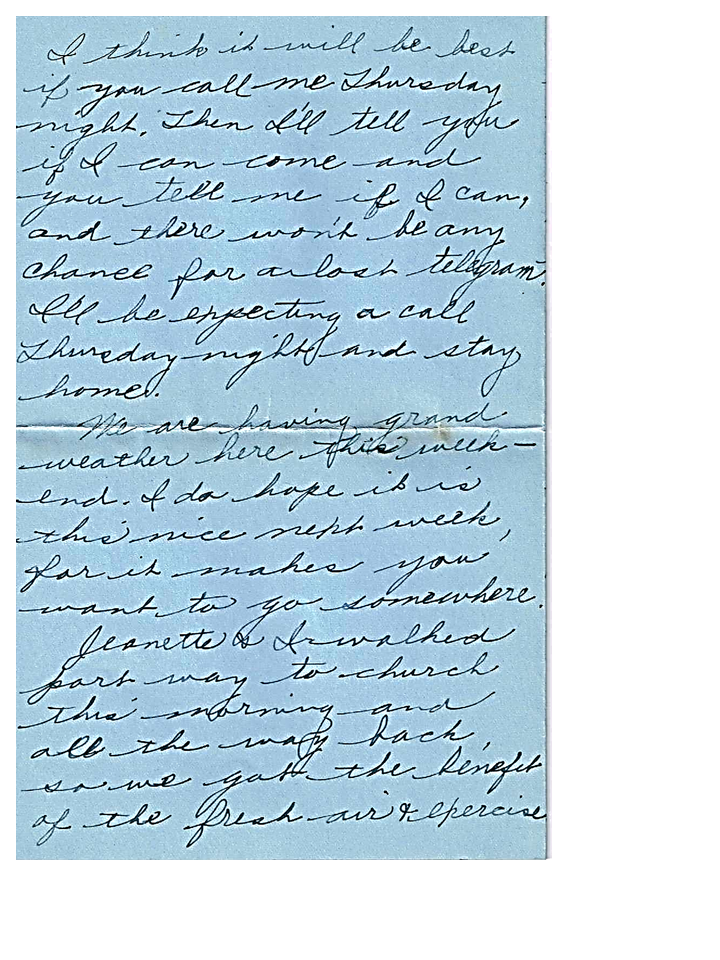 I think it will be best
if you call me Thursday
night. Then I'll tell you
if I can come and
you tell me if I can,
and there won't be any
chance for a lost telegram.
I'll be expecting a call
Thursday night and stay
home.
We are having grand
weather here this week-
end. I do hope it is
this nice next week,
for it makes you
want to go somewhere.
Jeanette & I walked
part way to church
this morning and
all the way back,
so we got the benefit
of the fresh air & exercise